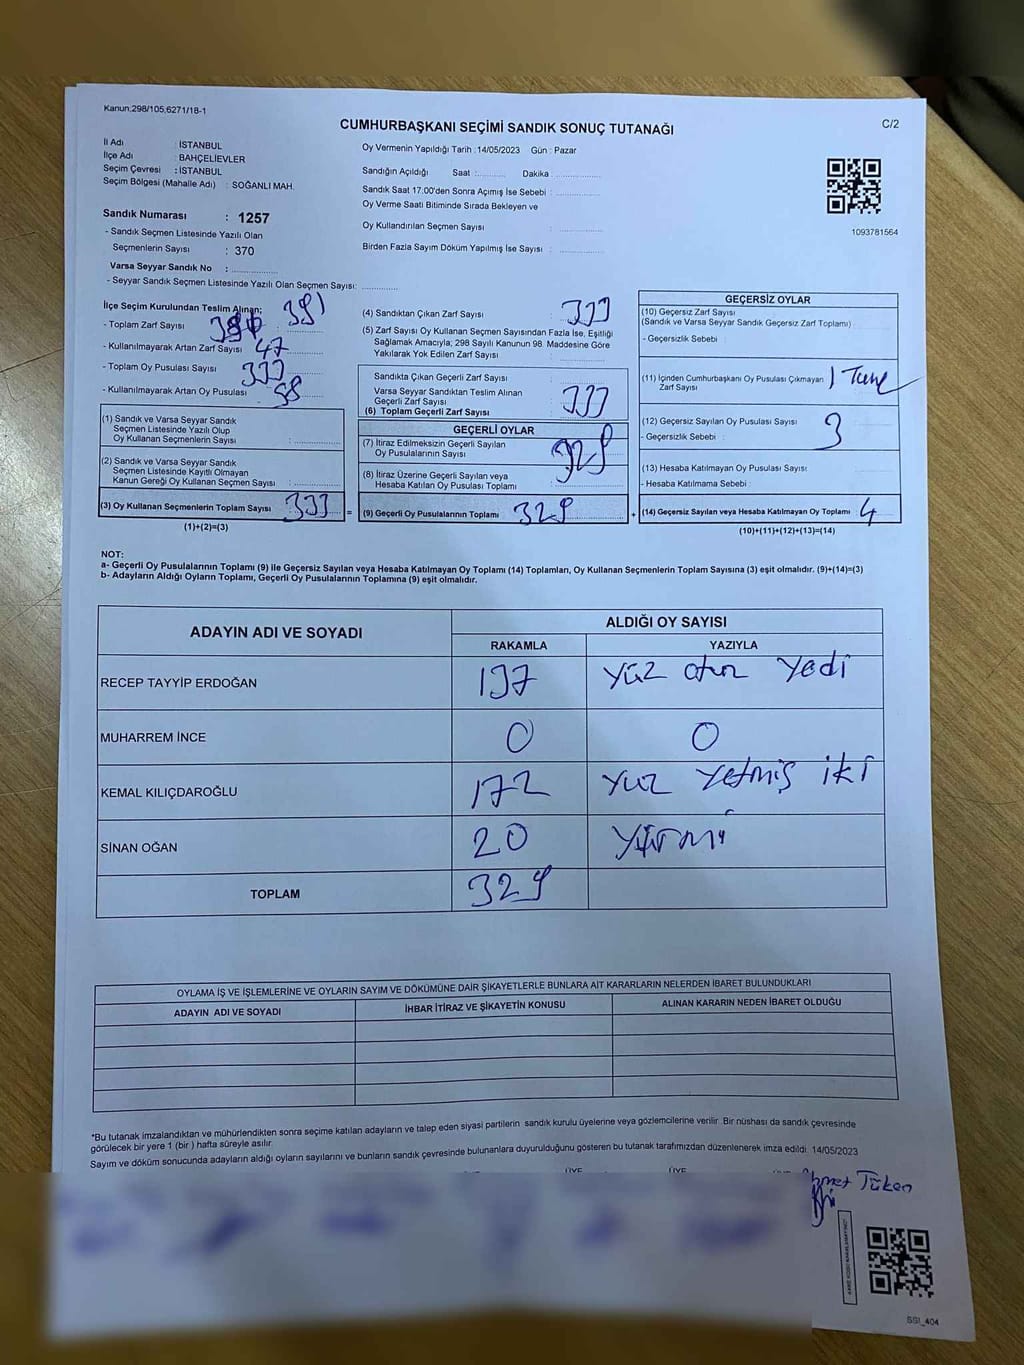 Kanun:298/105,6271/18-1
CUMHURBAŞKANI SEÇİMİ SANDIK SONUÇ TUTANAĞI
C/2
İl Adı : İSTANBUL
İlçe Adı : BAHÇELİEVLER
Seçim Çevresi : İSTANBUL
Seçim Bölgesi (Mahalle Adı) : SOĞANLI MAH.
Sandık Numarası : 1257
- Sandık Seçmen Listesinde Yazılı Olan
Seçmenlerin Sayısı : 370
Varsa Seyyar Sandık No :
- Seyyar Sandık Seçmen Listesinde Yazılı Olan Seçmen Sayısı:
Oy Vermenin Yapıldığı Tarih : 14/05/2023 Gün : Pazar
Sandığın Açıldığı Saat : Dakika :
Sandık Saat 17:00'den Sonra Açımış İse Sebebi :
Oy Verme Saati Bitiminde Sırada Bekleyen ve
Oy Kullandırılan Seçmen Sayısı :
Birden Fazla Sayım Döküm Yapılmış İse Sayısı :
1093781564
İlçe Seçim Kurulundan Teslim Alınan;
- Toplam Zarf Sayısı : 391
- Kullanılmayarak Artan Zarf Sayısı : 47
- Toplam Oy Pusulası Sayısı : 333
- Kullanılmayarak Artan Oy Pusulası : 58
(1) Sandık ve Varsa Seyyar Sandık
Seçmen Listesinde Yazılı Olup
Oy Kullanan Seçmenlerin Sayısı :
(2) Sandık ve Varsa Seyyar Sandık
Seçmen Listesinde Kayıtlı Olmayan
Kanun Gereği Oy Kullanan Seçmen Sayısı :
(3) Oy Kullanan Seçmenlerin Toplam Sayısı : 333
(1)+(2)=(3)
=
(4) Sandıktan Çıkan Zarf Sayısı : 333
(5) Zarf Sayısı Oy Kullanan Seçmen Sayısından Fazla İse, Eşitliği
Sağlamak Amacıyla; 298 Sayılı Kanunun 98. Maddesine Göre
Yakılarak Yok Edilen Zarf Sayısı :
Sandıkta Çıkan Geçerli Zarf Sayısı :
Varsa Seyyar Sandıktan Teslim Alınan
Geçerli Zarf Sayısı :
(6) Toplam Geçerli Zarf Sayısı : 333
GEÇERLİ OYLAR
(7) İtiraz Edilmeksizin Geçerli Sayılan
Oy Pusulalarının Sayısı : 329
(8) İtiraz Üzerine Geçerli Sayılan veya
Hesaba Katılan Oy Pusulası Toplamı :
(9) Geçerli Oy Pusulalarının Toplamı : 329
+
GEÇERSİZ OYLAR
(10) Geçersiz Zarf Sayısı
(Sandık ve Varsa Seyyar Sandık Geçersiz Zarf Toplamı)
- Geçersizlik Sebebi :
(11) İçinden Cumhurbaşkanı Oy Pusulası Çıkmayan
Zarf Sayısı 1 Tane
(12) Geçersiz Sayılan Oy Pusulası Sayısı : 3
- Geçersizlik Sebebi :
(13) Hesaba Katılmayan Oy Pusulası Sayısı
- Hesaba Katılmama Sebebi :
(14) Geçersiz Sayılan veya Hesaba Katılmayan Oy Toplamı : 4
(10)+(11)+(12)+(13)=(14)
NOT:
a- Geçerli Oy Pusulalarının Toplamı (9) ile Geçersiz Sayılan veya Hesaba Katılmayan Oy Toplamı (14) Toplamları, Oy Kullanan Seçmenlerin Toplam Sayısına (3) eşit olmalıdır. (9)+(14)=(3)
b- Adayların Aldığı Oyların Toplamı, Geçerli Oy Pusulalarının Toplamına (9) eşit olmalıdır.
ADAYIN ADI VE SOYADI
ALDIĞI OY SAYISI
RAKAMLA YAZIYLA
RECEP TAYYİP ERDOĞAN 137 yüz otuz yedi
MUHARREM İNCE 0 0
KEMAL KILIÇDAROĞLU 172 yüz yetmiş iki
SİNAN OĞAN 20 yirmi
TOPLAM 329
OYLAMA İŞ VE İŞLEMLERİNE VE OYLARIN SAYIM VE DÖKÜMÜNE DAİR ŞİKAYETLERLE BUNLARA AİT KARARLARIN NELERDEN İBARET BULUNDUKLARI
ADAYIN ADI VE SOYADI İHBAR İTİRAZ VE ŞİKAYETİN KONUSU ALINAN KARARIN NEDEN İBARET OLDUĞU
*Bu tutanak imzalandıktan ve mühürlendikten sonra seçime katılan adayların ve talep eden siyasi partilerin sandık kurulu üyelerine veya gözlemcilerine verilir. Bir nüshası da sandık çevresinde
görülecek bir yere 1 (bir) hafta süreyle asılır.
Sayım ve döküm sonucunda adayların aldığı oyların sayılarını ve bunların sandık çevresinde bulunanlara duyurulduğunu gösteren bu tutanak tarafımızdan düzenlenerek imza edildi. 14/05/2023
ÜYE ÜYE
Ahmet Tüken
SSI_404